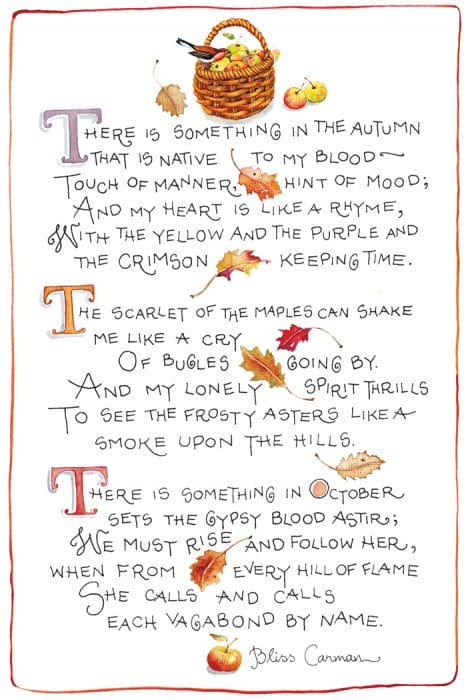 There is something in the autumn
that is native to my blood~
Touch of manner, hint of mood;
And my heart is like a rhyme,
With the yellow and the purple and
the crimson keeping time.
The scarlet of the maples can shake
me like a cry
Of bugles going by.
And my lonely spirit thrills
To see the frosty asters like a
smoke upon the hills.
There is something in October
sets the gypsy blood astir;
We must rise and follow her,
when from every hill of flame
She calls and calls
each vagabond by name.
Bliss Carman